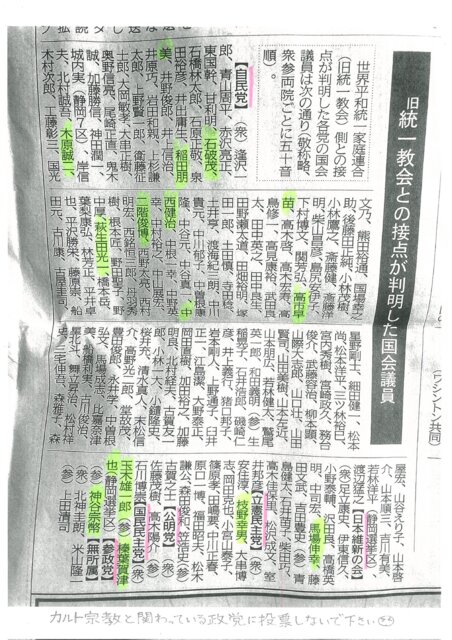 旧統一教会との接点が判明した国会議員
世界平和統一家庭連合
(旧統一教会)側との接
点が判明した各党の国会
議員は次の通り(敬称略、
衆参両院ごとに五十音
順)。
【自民党】(衆)逢沢一
郎、青山周平、赤沢亮正、
東国幹、甘利明、石破茂、
石橋林太郎、石原正敬、泉
田裕彦、井出庸生、稲田朋
美、井野俊郎、井上信治、
井原巧、岩田和親、上杉謙
太郎、上野賢一郎、衛藤征
士郎、大岡敏孝、大串正樹、
奥野信亮、尾崎正直、鬼木
誠、加藤勝信、神田潤一、
城内実(静岡7区)、岸信
夫、北村誠吾、木原誠二、
木村次郎、工藤彰三、国光
文乃、熊田裕通、国場幸之
助、後藤田正純、小林茂樹、
小林鷹之、斎藤健、斎藤洋
明、柴山昌彦、島尻安伊子、
下村博文、関芳弘、高市早
苗、高木啓、高木宏寿、高
鳥修一、高見康裕、武田良
太、田中英之、田中良生、
田野瀬太道、田畑裕明、塚
田一郎、土田慎、寺田稔、
土井亨、渡海紀三朗、中川
貴元、中川郁子、中曽根康
隆、中谷元、中谷真一、中
西健治、中根一幸、中野英
幸、中村裕之、中山展宏、
二階俊博、西野太亮、西村
明宏、西銘恒三郎、丹羽秀
樹、根本匠、野田聖子、野
中厚、萩生田光一、橋本岳、
葉梨康弘、林芳正、平井卓
也、平沢勝栄、藤原崇、船
田元、古川康、古屋圭司、
星野剛士、細田健一、松本
尚、松本洋平、三ツ林裕巳、
宮内秀樹、宮崎政久、務台
俊介、武藤容治、柳本顕、
山際大志郎、山口壮、山田
賢司、山田美樹、山本左近、
山本朋広、若林健太、鷲尾
英一郎、和田義明(参)生
稲晃子、石井浩郎、磯崎仁
彦、井上義行、猪口邦子、
岩本剛人、上野通子、臼井
正一、江島潔、大野泰正、
岡田直樹、加田裕之、加藤
明良、北村経夫、古賀友一
郎、小林一大、小鑓隆史、
桜井充、清水真人、末松信
介、高野光二郎、堂故茂、
豊田俊郎、永井学、中曽根
弘文、馬場成志、比嘉奈津
美、船橋利実、古川俊治、
星北斗、舞立昇治、松村祥
史、三宅伸吾、森雅子、森
屋宏、山谷えり子、山本啓
介、山本順三、吉川有美、
若林洋平(静岡選挙区)、
渡辺猛之【日本維新の会】
(衆)足立康史、伊東信久、
小野泰輔、沢田良、高橋英
明、中司宏、馬場伸幸、藤
田文武、吉田豊史(参)青
島健太、石井苗子、柴田巧、
高木佳保里、松沢成文、室
井邦彦【立憲民主党】(衆)
安住淳、枝野幸男、大串博
志、岡田克也、小宮山泰子、
篠原孝、田嶋要、中川正春、
原口一博、福田昭夫、松木
謙公、森田俊和、笠浩史(参)
古賀之士【公明党】(衆)
高木陽介(参)
石川博崇【国民民主党】(衆)
玉木雄一郎(参)榛葉賀津
也(静岡選挙区)【参政党】
(参)神谷宗幣【無所属】
(衆)北神圭朗、米山隆一
(参)上田清司
カルト宗教と関わっている政党に投票しないで下さい